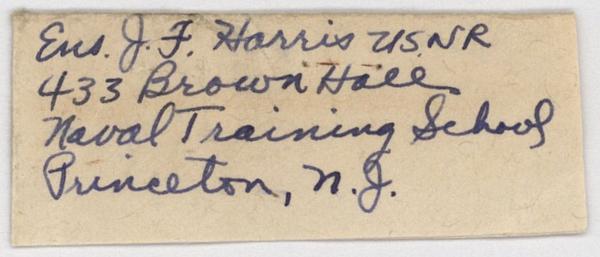 Ens. J. F. Harris USNR
433 Brown Hall
Naval Training School
Princeton, N.J.